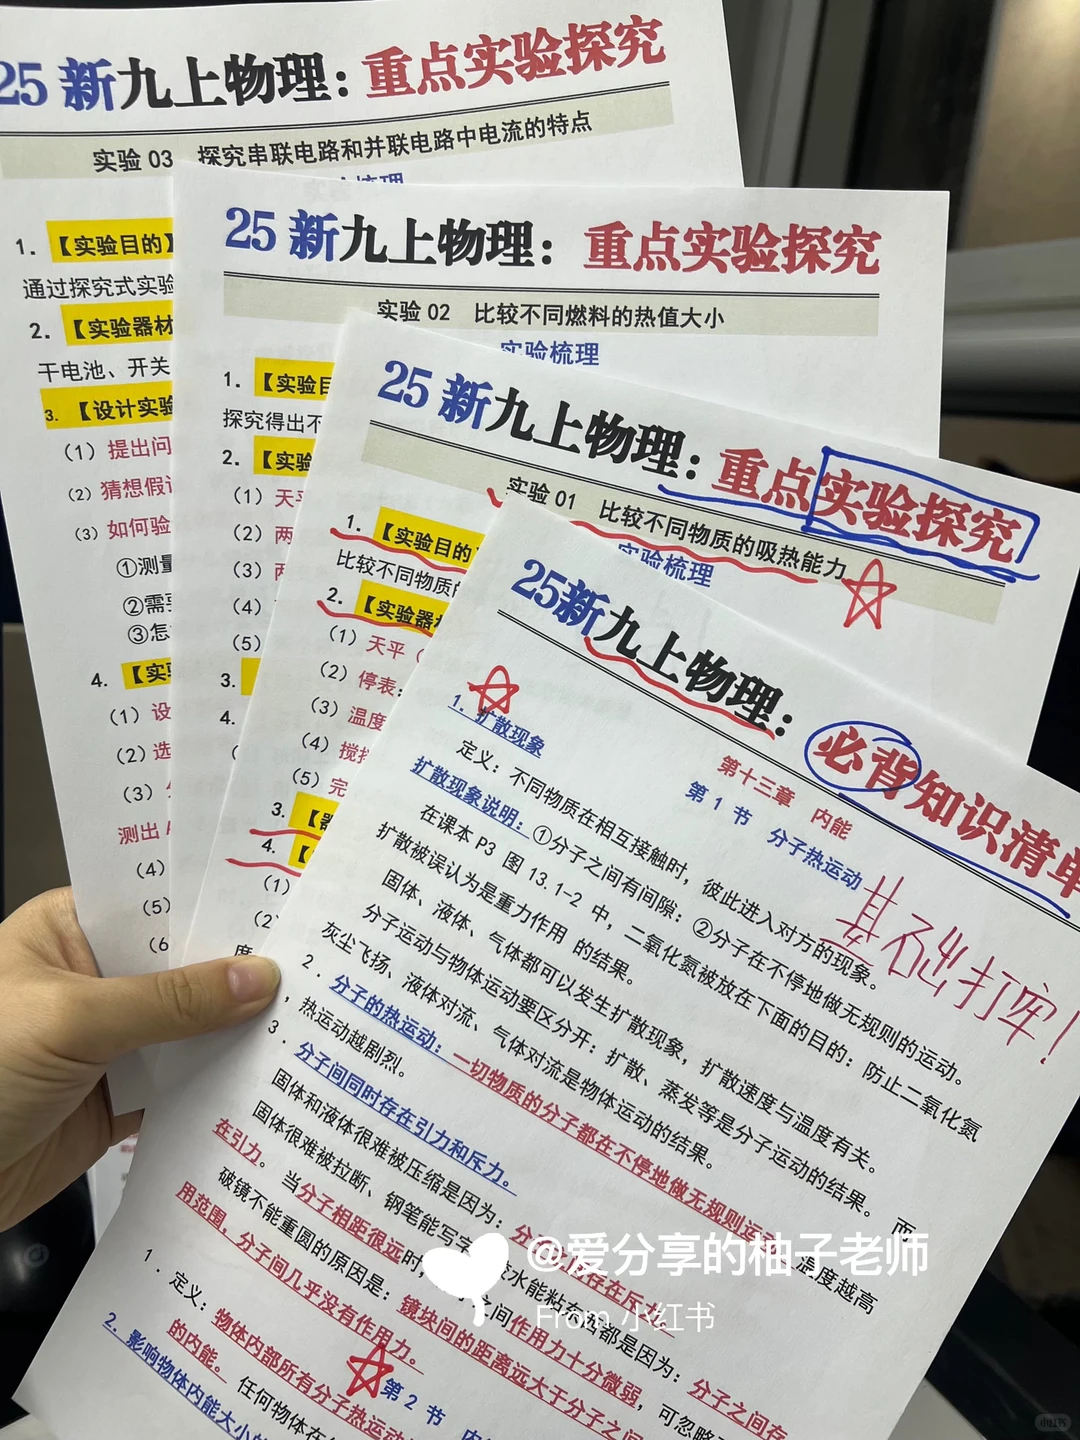 25 新九上物理：重点实验探究
实验 03 探究串联电路和并联电路中电流的特点
1. 【实验目的】
通过探究式实验
2. 【实验器材
干电池、开关
3. 【设计实验
（1）提出问
（2）猜想假设
（3）如何验
①测量
②需要
③怎
4. 【实
（1）设
（2）选
（3）
测出
（4）
（5）
（6
25 新九上物理：重点实验探究
实验 02 比较不同燃料的热值大小
实验梳理
1. 【实验目
探究得出不
2. 【实验
（1）天平
（2）两
（3）两
（4）
（5）
3.
4.
25 新九上物理：重点实验探究
实验 01 比较不同物质的吸热能力
实验梳理
1. 【实验目的
比较不同物质的
2. 【实验器材
（1）天平（
（2）停表：
（3）温度
（4）搅拌
（5）完
3. 【器
4. 【
（1）
（2）
度
25新九上物理：必背知识清单
第十三章 内能
第 1 节 分子热运动
基础打牢！
1. 扩散现象
定义：不同物质在相互接触时，彼此进入对方的现象。
扩散现象说明：①分子之间有间隙；②分子在不停地做无规则的运动。
在课本 P3 图 13.1-2 中，二氧化氮被放在下面的目的：防止二氧化氮
扩散被误认为是重力作用 的结果。
固体、液体、气体都可以发生扩散现象，扩散速度与温度有关。
分子运动与物体运动要区分开：扩散、蒸发等是分子运动的结果。 而
灰尘飞扬、液体对流、气体对流是物体运动的结果。
2. 分子的热运动：一切物质的分子都在不停地做无规则运动 温度越高
，热运动越剧烈。
3. 分子间同时存在引力和斥力。
固体和液体很难被压缩是因为：分子之间存在斥力
固体很难被拉断、钢笔能写字 胶水能粘东西都是因为：分子之间存
在引力。 当分子相距很远时， 分子间作用力十分微弱，可忽略
破镜不能重圆的原因是：镜块间的距离远大于分子之间
用范围，分子间几乎没有作用力。
第 2 节 内
1. 定义：物体内部所有分子热运动
的内能。 任何物体在
2. 影响物体内能大小的
@爱分享的柚子老师
From 小红书
小红书